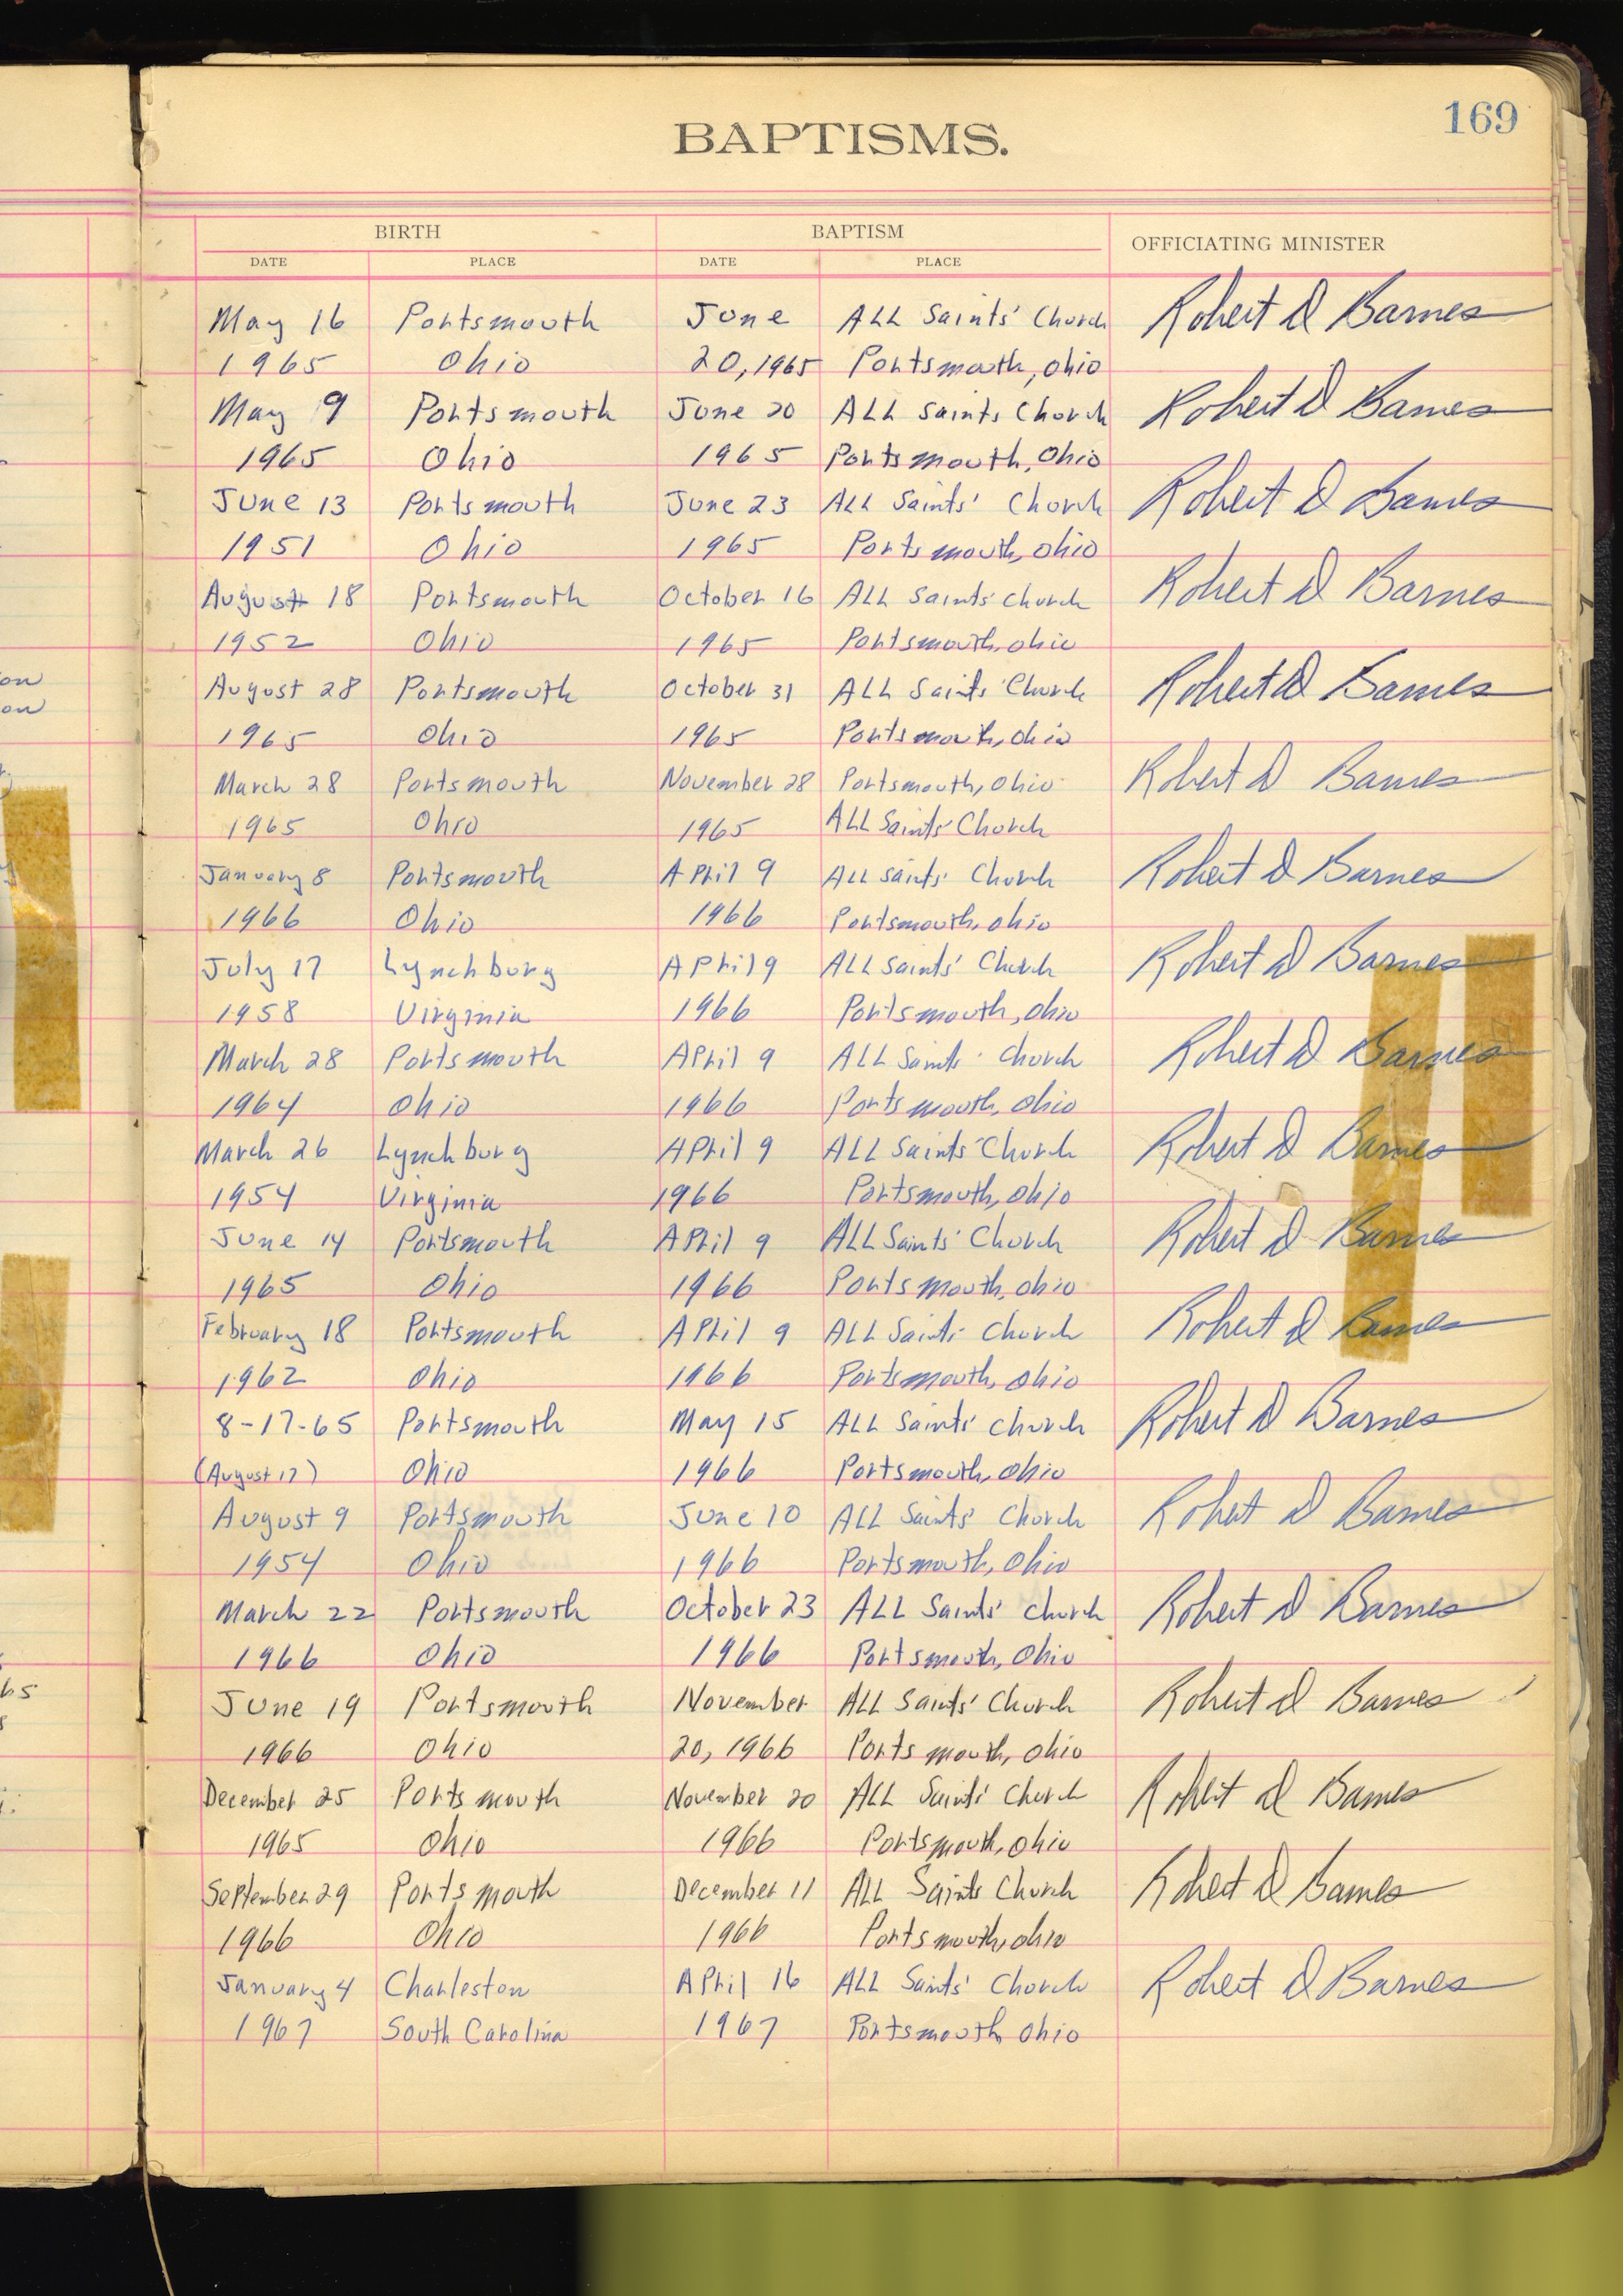 169
BAPTISMS.
BIRTH BAPTISM OFFICIATING MINISTER
DATE PLACE DATE PLACE
May 16 Portsmouth June ALL Saints' Church Robert D Barnes
1965 Ohio 20, 1965 Portsmouth, Ohio
May 9 Portsmouth June 20 ALL Saints Church Robert D Barnes
1965 Ohio 1965 Portsmouth, Ohio
June 13 Portsmouth June 23 ALL Saints' Church Robert D Barnes
1951 Ohio 1965 Portsmouth, Ohio
August 18 Portsmouth October 16 ALL Saints' Church Robert D Barnes
1952 Ohio 1965 Portsmouth, Ohio
on
August 28 Portsmouth October 31 ALL Saints' Church Robert D Barnes
on
1965 Ohio 1965 Portsmouth, Ohio
March 28 Portsmouth November 28 Portsmouth, Ohio Robert D Barnes
1965 Ohio 1965 ALL Saints' Church
January 8 Portsmouth April 9 ALL Saints' Church Robert D Barnes
1966 Ohio 1966 Portsmouth, Ohio
July 17 Lynchburg April 9 ALL Saints' Church Robert D Barnes
1958 Virginia 1966 Portsmouth, Ohio
March 28 Portsmouth April 9 ALL Saints' Church Robert D Barnes
1964 Ohio 1966 Portsmouth, Ohio
March 26 Lynchburg April 9 ALL Saints' Church Robert D Barnes
1954 Virginia 1966 Portsmouth, Ohio
June 14 Portsmouth April 9 ALL Saints' Church Robert D Barnes
1965 Ohio 1966 Portsmouth, Ohio
February 18 Portsmouth April 9 ALL Saints' Church Robert D Barnes
1962 Ohio 1966 Portsmouth, Ohio
8-17-65 Portsmouth May 15 ALL Saints' Church Robert D Barnes
(August 17) Ohio 1966 Portsmouth, Ohio
August 9 Portsmouth June 10 ALL Saints' Church Robert D Barnes
1954 Ohio 1966 Portsmouth, Ohio
March 22 Portsmouth October 23 ALL Saints' Church Robert D Barnes
1966 Ohio 1966 Portsmouth, Ohio
June 19 Portsmouth November ALL Saints' Church Robert D Barnes
1966 Ohio 20, 1966 Portsmouth, Ohio
December 25 Portsmouth November 20 ALL Saints' Church Robert D Barnes
1965 Ohio 1966 Portsmouth, Ohio
September 29 Portsmouth December 11 ALL Saints Church Robert D Barnes
1966 Ohio 1966 Portsmouth, Ohio
January 4 Charleston April 16 ALL Saints' Church Robert D Barnes
1967 South Carolina 1967 Portsmouth Ohio